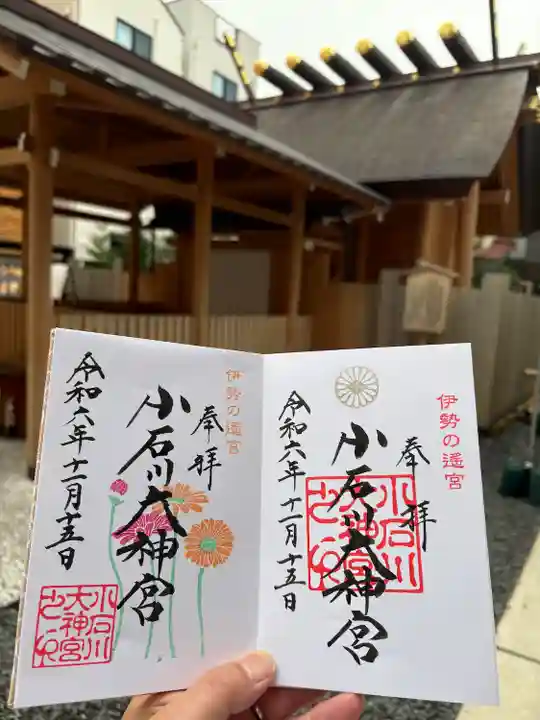 伊勢の遥宮
奉拝
小石川大神宮
令和六年十一月十五日
小石川
大神宮
伊勢の遥宮
奉拝
小石川大神宮
令和六年十一月十五日
小石川
大神宮